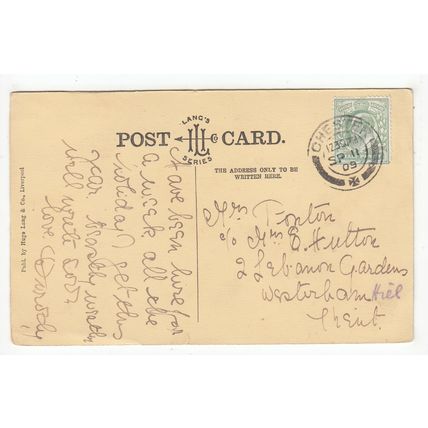 LANG'S
LL Co
SERIES
POST CARD.
THE ADDRESS ONLY TO BE
WRITTEN HERE.
CHESTER
12.30PM
SP 11
09
Publ. by Hugo Lang & Co., Liverpool
Have been here for
a week all the
holiday
year
will write soon
love Dorothy
Mrs Ponton
c/o Mrs E Hutton
2 Lebanon Gardens
Westerham Hill
Kent.